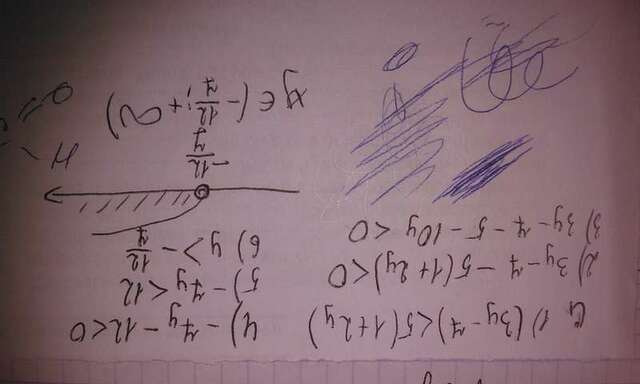 a 1) (3y-7)<5(1+2y)
2) 3y-7-5(1+2y)<0
3) 3y-7-5-10y<0
4) -7y-12<0
5) -7y<12
6) y>-12/7
-12/7
xy∈(-12/7; +∞)
H
O